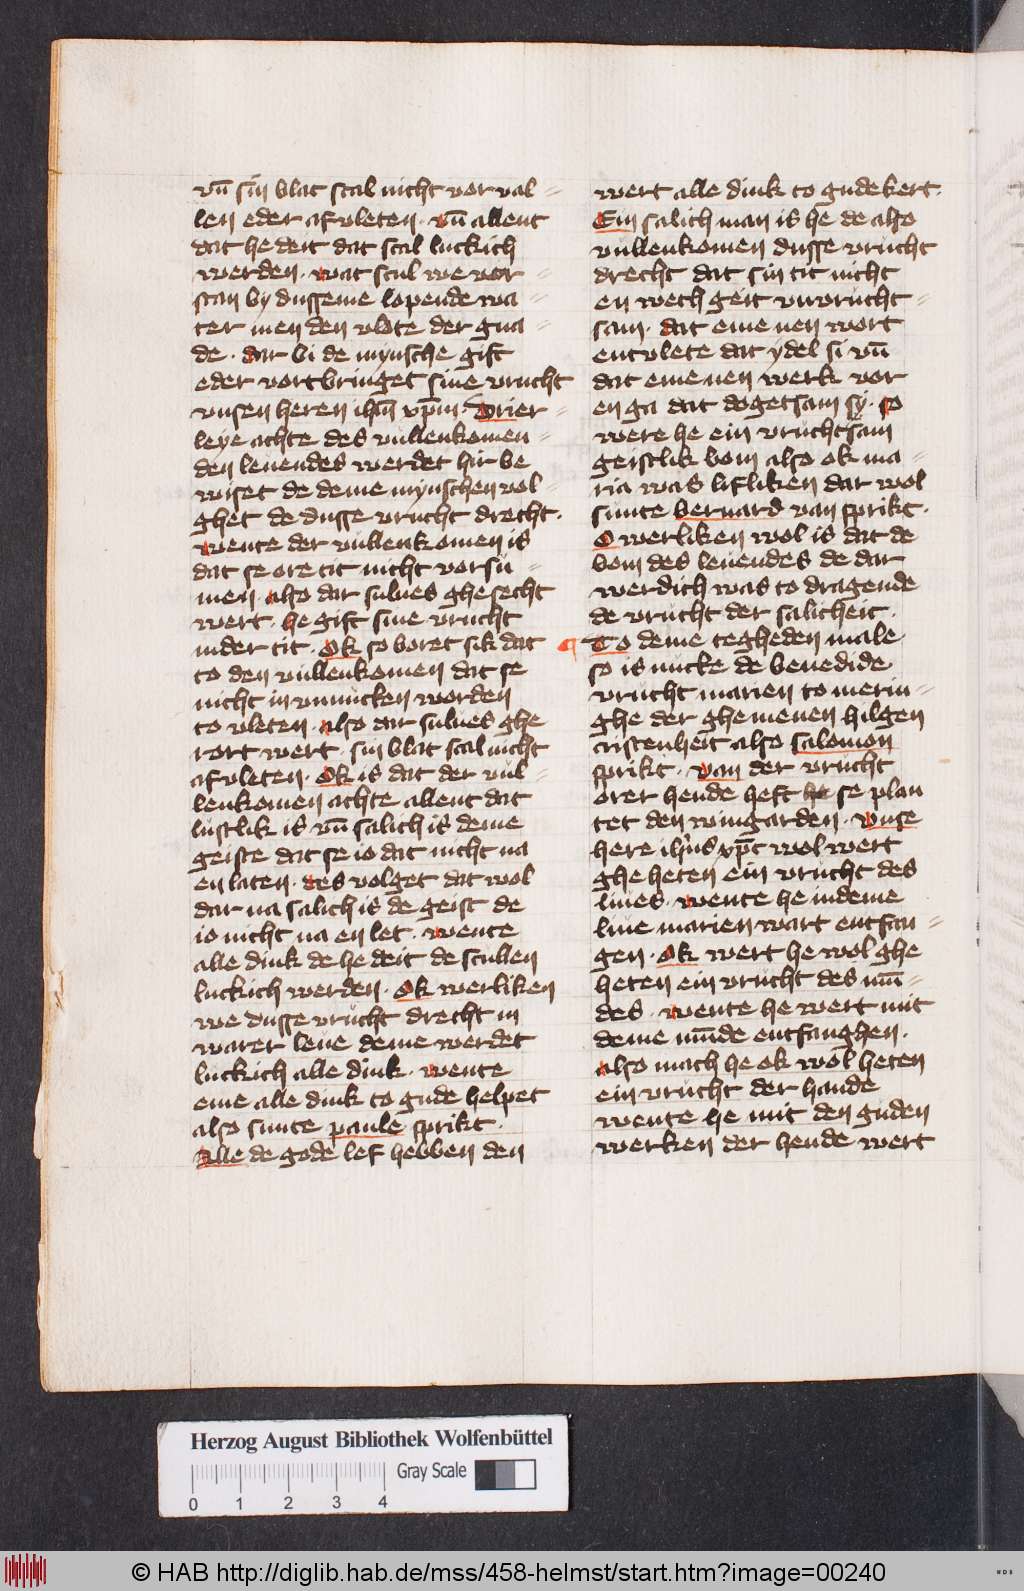 vn̄ sin blat scal nicht vor val=
len eder af vleten. vn̄ allent
dat he deit dat scal luckich
werden. wat scul we vor=
stan by dusseme lopende wa=
ter men den vlote der gna=
de. dar bi de mynsche gift
eder vortbringet sine vrucht
vnsen heren ihm̄ xp̄m. Drier=
leye achte des vullenkomen=
den leuendes werdet hir be
wiset de deme mynschen vol=
ghet de dusse vrucht drecht.
wente der vullenkomen is
dat se ore tit nicht vorsu=
men. also dar sulues ghesecht
wert. he gift sine vrucht
in der tit. Ok so boret sik dat
to den vullenkomen dat se
nicht in vnnucken worden
to vleten. also dar sulues ghe
rort wert. sin blat scal nicht
af vleten. Ok is dat der vul=
lenkomen achte allent dat
lustlik is vn̄ salich is deme
geiste dat se io dat nicht na
en laten. des volget dat wol
dar na salich is de geist de
io nicht na en let. wente
alle dink de he deit de scullen
luckich werden. Ok werliken
we dusse vrucht drecht in
warer leue deme werdet
luckich alle dink. wente
eme alle dink to gude helpet
also sunte paule sprikt.
Alle de gode lef hebben den
wert alle dink to gude kert.
Ein salich man is he de also
vullenkomen dusse vrucht
drecht dat sin tit nicht
en wech geit vnvrucht=
sam. dat eme nen wort
entvlete dat ydel si vn̄
dat eme nen werk vor
en ga dat dogetsam sy. so
were he ein vruchtsam
geistlik bom also ok ma=
ria was lifliken dar wol
sunte bernard van sprikt.
O werliken wol is dat de
bom des leuendes de dar
werdich was to dragende
de vrucht der salicheit.
¶ To deme tegheden male
so is nutte de benedide
vrucht marien to merin=
ghe der ghemenen hilgen
cristenheit also salomon
sprikt. van der vrucht
orer hende heft se plan
tet den wingarden. vnse
here ihūs xp̄c wol wert
ghe heten ein vrucht des
liues. wente he in deme
liue marien wart entfan=
gen. Ok wert he wol ghe
heten ein vrucht des mū=
des. wente he wert mit
deme mūde entfanghen.
also mach he ok wol heten
ein vrucht der hande
wente he mit den guden
werken der hende wert
Herzog August Bibliothek Wolfenbüttel
0 1 2 3 4 Gray Scale
© HAB http://diglib.hab.de/mss/458-helmst/start.htm?image=00240